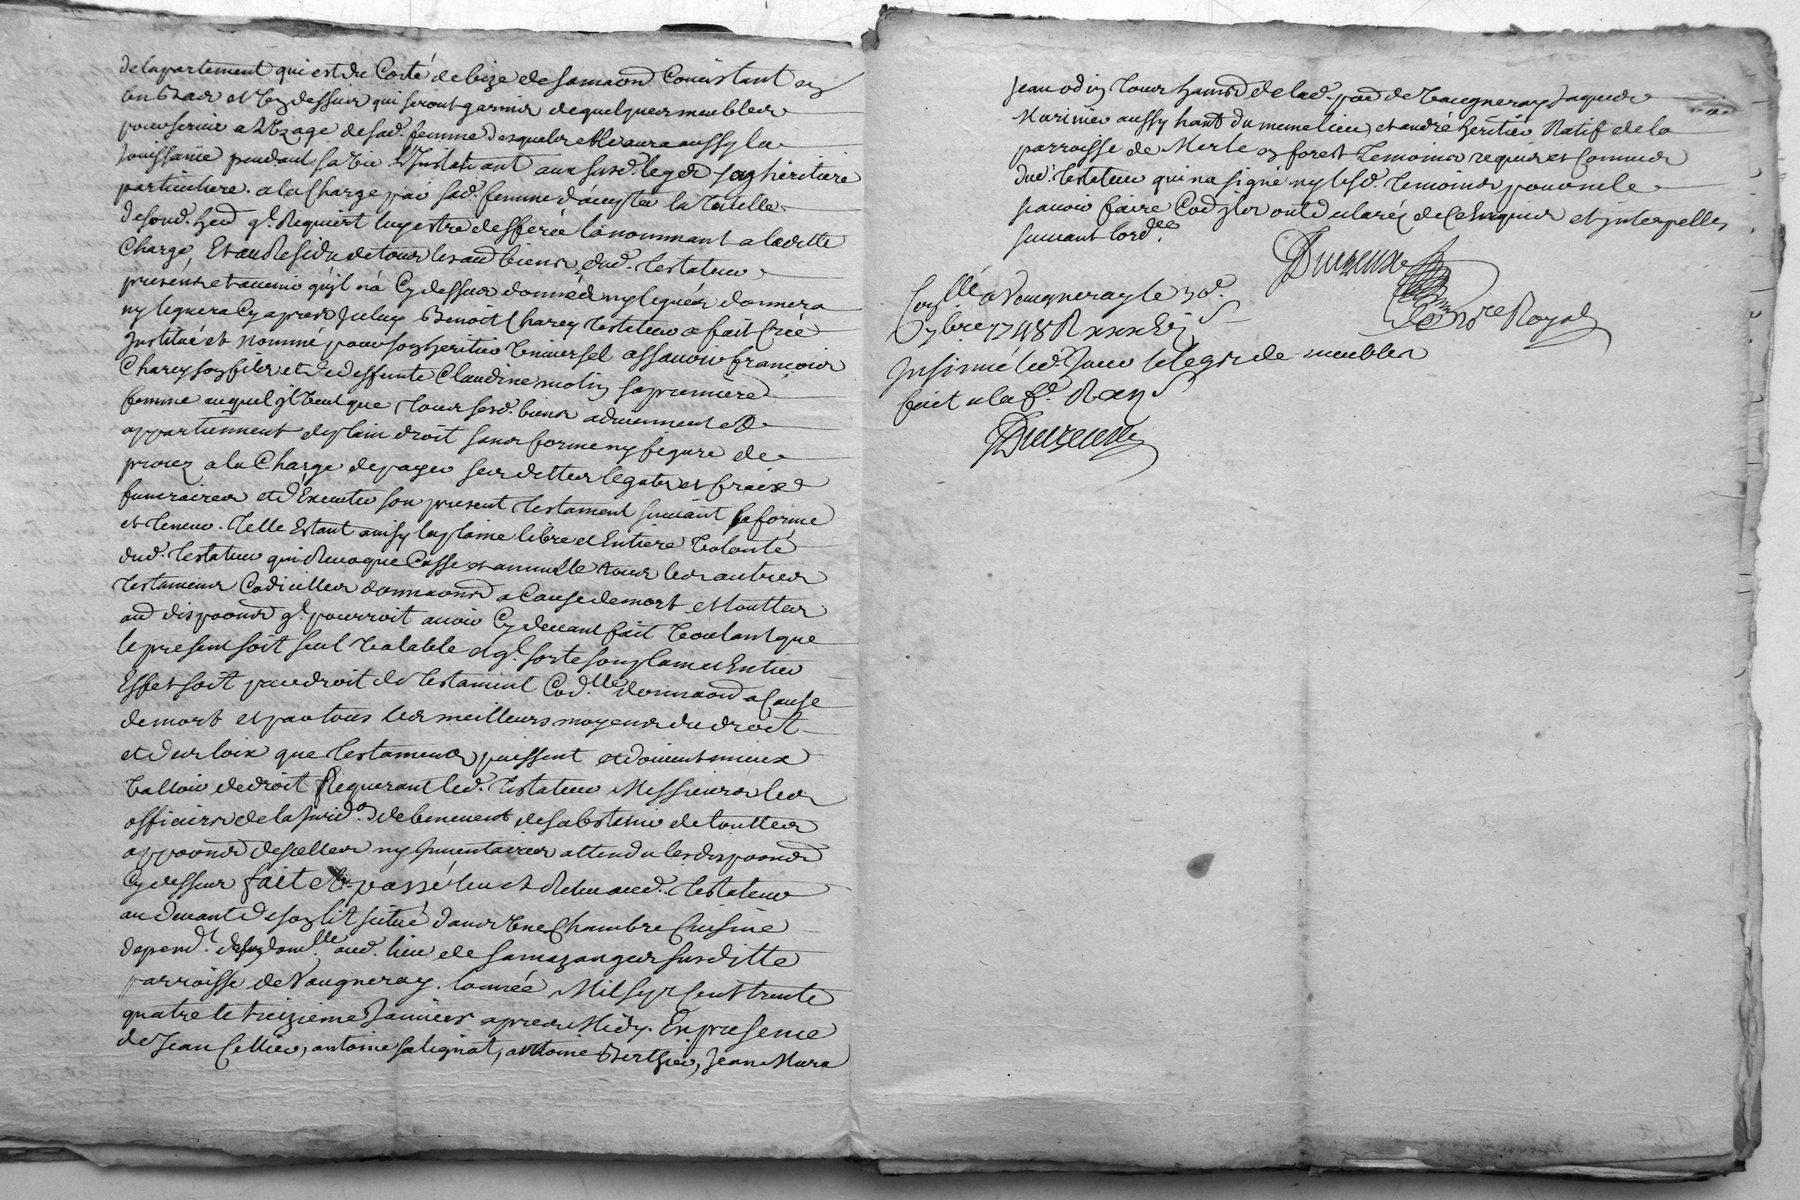 delapartement qui est du Costé de bize de sa maon Consistant en
un Bas et un dessus qui seront garnis de quelques meubles
pour servir a l'Uzage de sad. femme desquels elle aura aussy la
Jouissance pendant sa vie l'Instituant aux susd. leges son heritiere
particuliere. a la Charge par sad. femme d'accepter la tutelle
de sond. hed. ql. Requiert luy estre defferée la nommant a laditte
Charge, Et au Residu de tous les aud. biens dud. testateur
presents et avenir qu'il n'a Cy dessus donnéd ny legués donnera
ny leguera Cy apres Iceluy Benoit Charey testateur a fait Créé
Institué et Nommé pour son heritier Universel assavoir françois
Charey son fils et de deffunte Claudine molin sa premiere
femme auquel il veut que tous sesd. biens adviennent et
appartiennent de plain droit sans forme ny figure de
procez a la Charge de payer ses dettes legats et fraix
funeraires et d'Executer son present testament suivant sa forme
et teneur. telle Estant ainsy la plaine libre et Entiere Volonté
dud. testateur qui Revoque Casse et annulle tous les autres
testaments Codicilles donnaons a Cause de mort et touttes
aud dispoons ql. pourroit avoir Cy devant fait Voulant que
le present soit seul Valable et ql. sorte son plain et Entier
Effet soit par droit de testament Codlle donnaon a Cause
de mort et par tous les meilleurs moyens du droit
et des loix que testaments puissent et doivent mieux
Valloir de droit Requerant led. testateur Messieurs les
officiers de la Jurid.on de l'evenement de s'abstenir de touttes
appoons de scelles ny Inventaires attendu les dispoons
Cy dessus fait et passé leu et Releu aud. testateur
au devant de son lit scitué dans Une Chambre Cuisine
depend.t de son domlle aud. lieu de samazange susditte
parroisse de Vaugneray. l'année Mil sept Cent trente
quatre le treizieme Janvier apres Midy. En presence
de Jean Cellier, antoine salignat, antoine Berthier, Jean Mura
Jean odin tous hants de lad. pae de Vaugneray Jaques
Marinier aussy hant du meme lieu, et andré heritier Natif de la
parroisse de Merle en forest temoins requis et Connus
dud. testateur qui n'a signé ny lesd. temoins pour ne le
scavoir faire Codiler ont declaréz de Ce Enquis et Interpellez
suivant l'ord.ce
Duizeux
Nore Royal
Conllé a Vaugneray le 30e.
xbre 1748 R
Insinué led. Jour le leges de meubles
fait a la fe. R
Duizeux